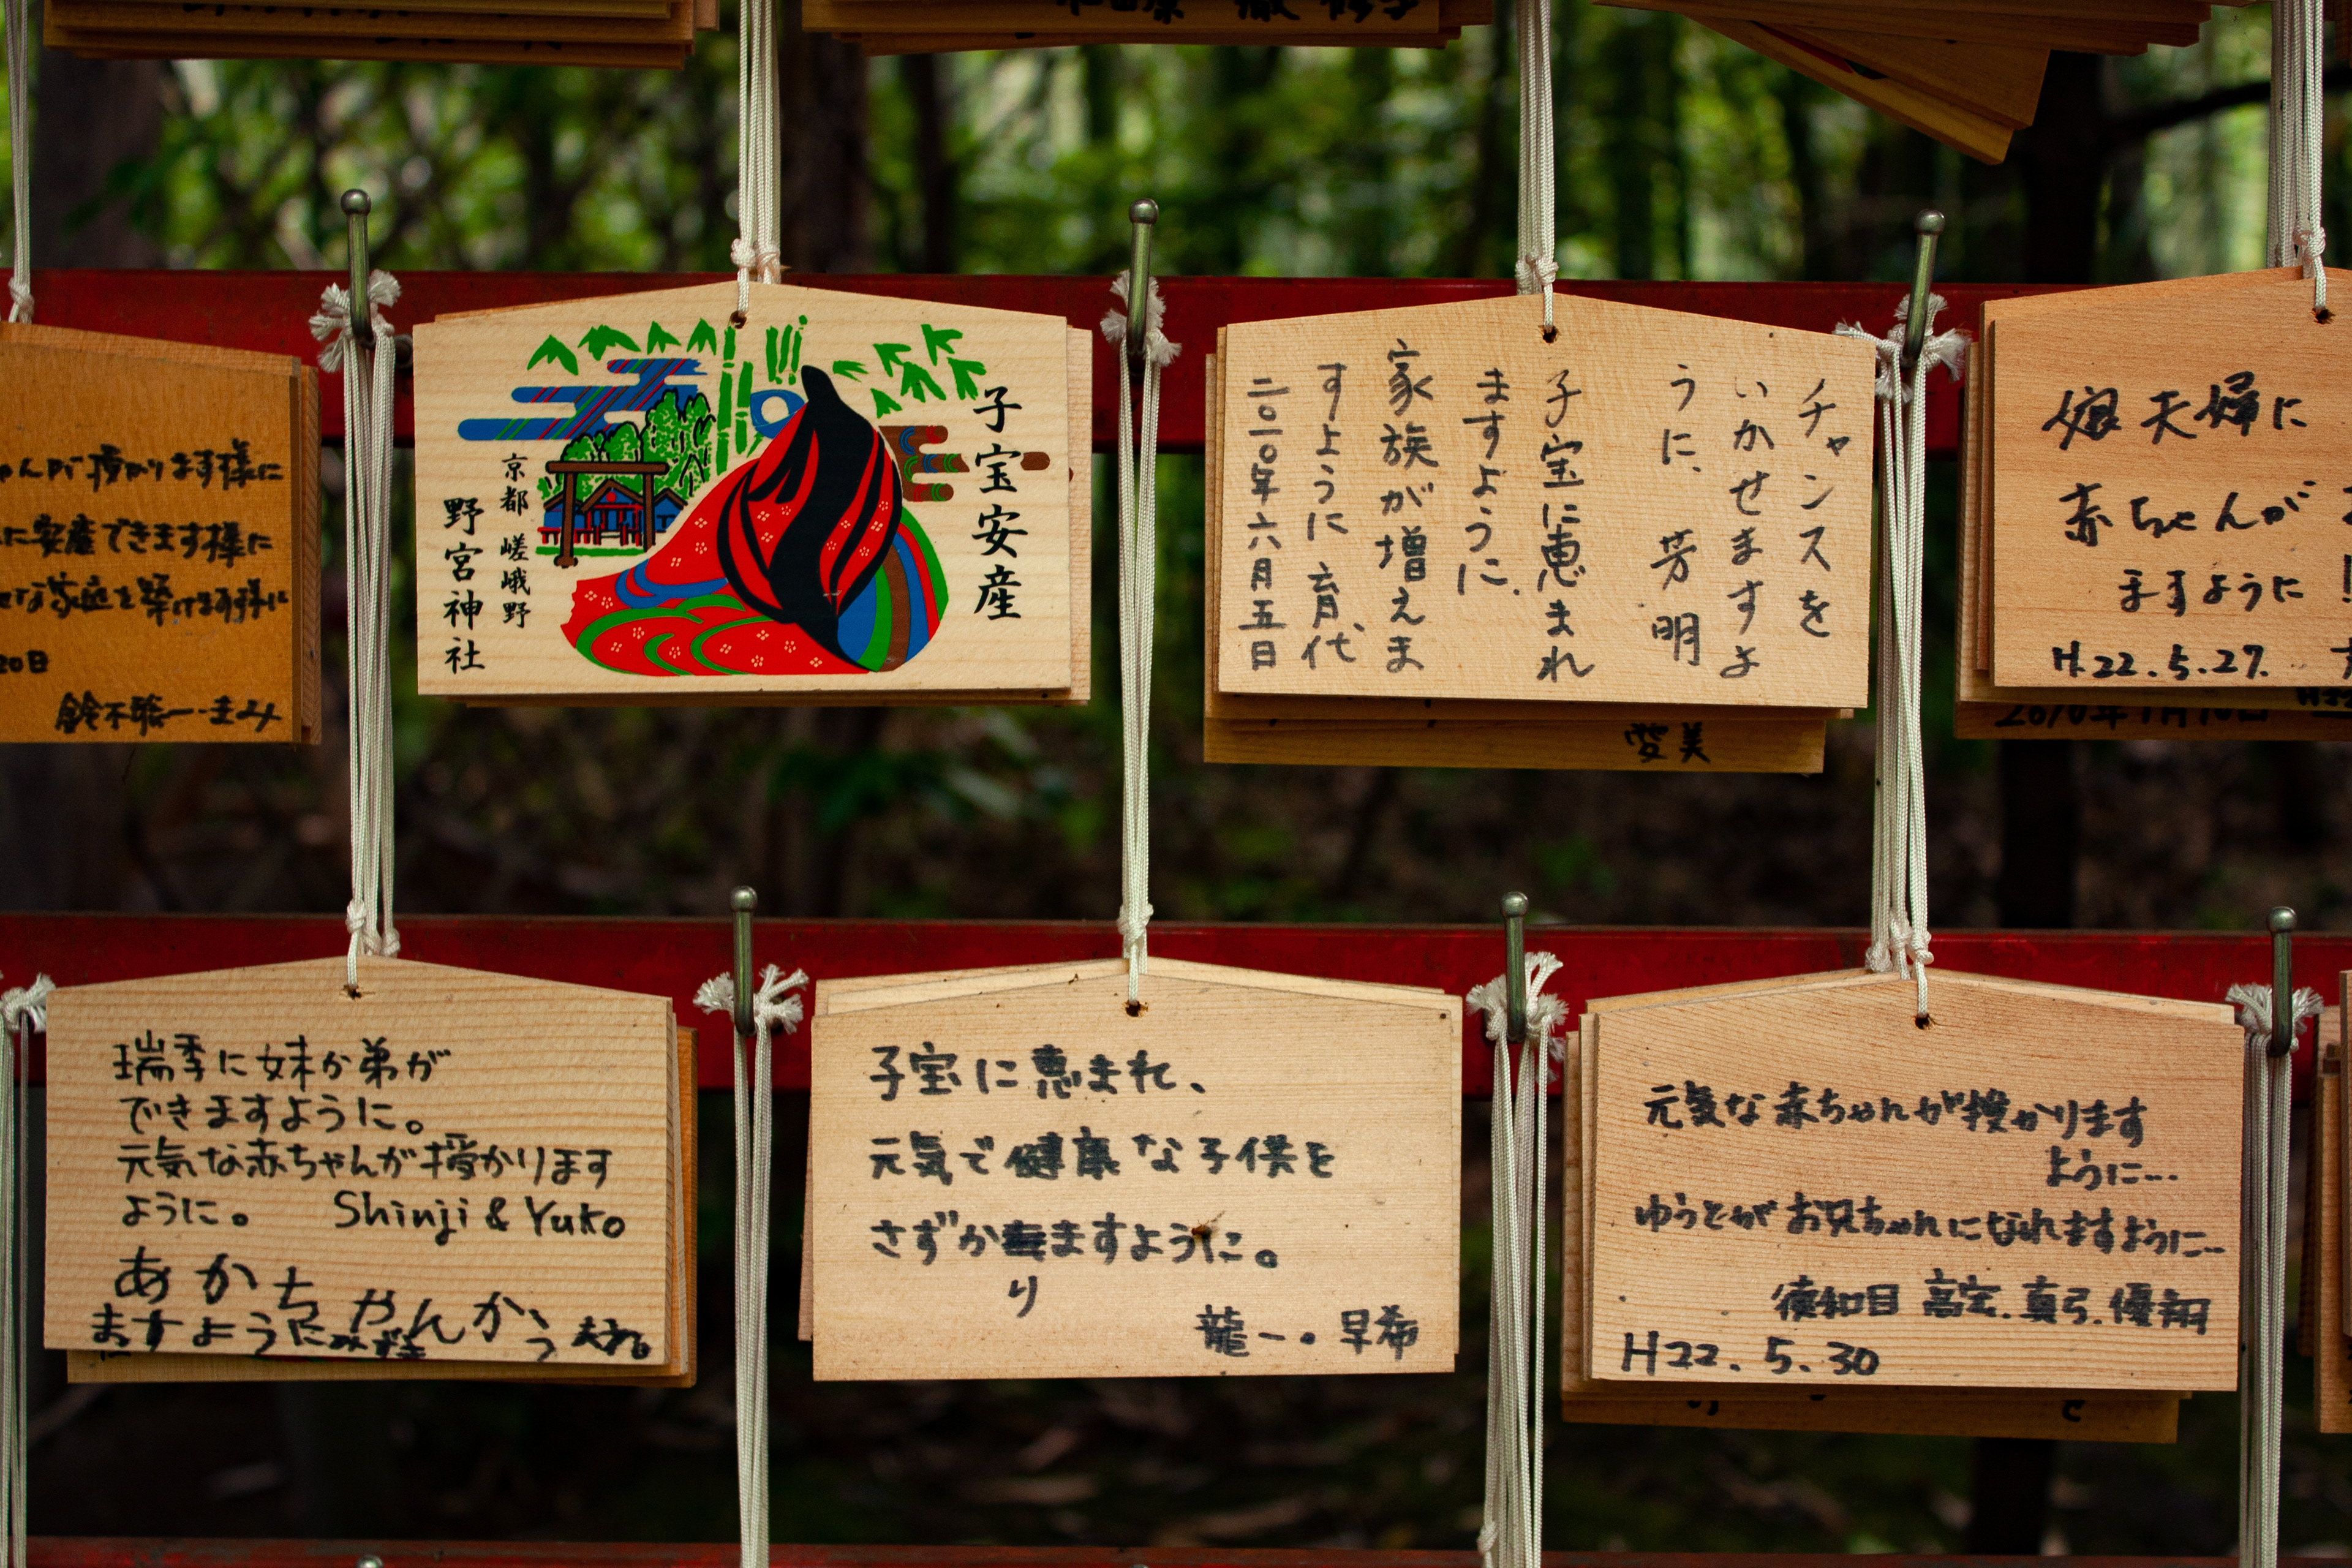 愛美
ゃんが授かります様に
に安産できます様に
な家庭を築けます様に
20日
子宝安産
京都 嵯峨野
野宮神社
チャンスを
いかせますよ
うに、 芳明
子宝に恵まれ
ますように、
家族が増えま
すように 育代
二〇一〇年六月五日
娘夫婦に
赤ちゃんが
ますように!
H.22.5.27.
瑞季に妹か弟が
できますように。
元気な赤ちゃんが授かります
ように。 Shinji & Yuko
あかちゃんかう
ますように みずき
子宝に恵まれ、
元気で健康な子供を
さずかりますように。
龍一・早希
元気な赤ちゃんが授かります
ように…
ゆうとがお兄ちゃんになれますように…
高宏.真弓.優翔
H22.5.30